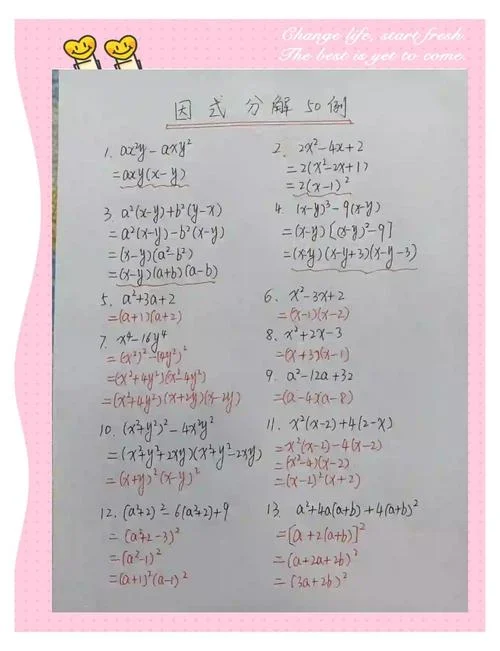 Change life, start fresh.
The best is yet to come.
因式分解50例
1. ax²y - axy²
= axy(x-y)
2. 2x²-4x+2
= 2(x²-2x+1)
= 2(x-1)²
3. a²(x-y)+b²(y-x)
= a²(x-y)-b²(x-y)
= (x-y)(a²-b²)
= (x-y)(a+b)(a-b)
4. (x-y)³-9(x-y)
= (x-y)[(x-y)²-9]
= (x-y)(x-y+3)(x-y-3)
5. a²+3a+2
= (a+1)(a+2)
6. x²-3x+2
= (x-1)(x-2)
7. x⁴-16y⁴
= (x²)²-(4y²)²
= (x²+4y²)(x²-4y²)
= (x²+4y²)(x+2y)(x-2y)
8. x²+2x-3
= (x+3)(x-1)
9. a²-12a+32
= (a-4)(a-8)
10. (x²+y²)²-4x²y²
= (x²+y²+2xy)(x²+y²-2xy)
= (x+y)²(x-y)²
11. x²(x-2)+4(2-x)
= x²(x-2)-4(x-2)
= (x²-4)(x-2)
= (x-2)²(x+2)
12. (a²+2)²-6(a²+2)+9
= (a²+2-3)²
= (a²-1)²
= (a+1)²(a-1)²
13. a²+4a(a+b)+4(a+b)²
= [a+2(a+b)]²
= (a+2a+2b)²
= (3a+2b)²